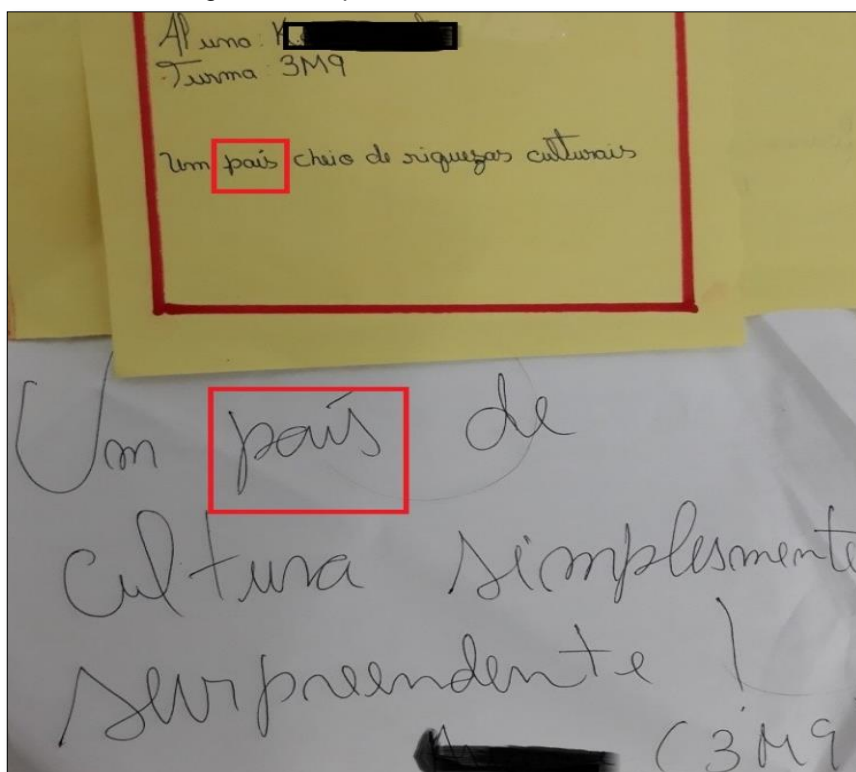 Aluno: K
Turma: 3M9
Um país cheio de riquezas culturais
Um país de
cultura simplesmente
surpreendente!
(3M9